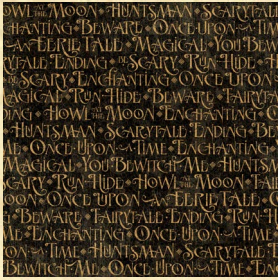 OWL AT THE MOON HUNTSMAN SCARYTALE
CHANTING BEWARE ONCE UPON A TIM
AN EERIE TALE MAGICAL YOU BEW
YTALE ENDING BE SCARY RUN HIDE H
BE SCARY ENCHANTING ONCE UPON
AGICAL RUN HIDE BEWARE FAIRYTA
DING HOWL AT THE MOON ENCHANTING O
HUNTSMAN SCARYTALE ENDING BE
ME ONCE UPON A TIME ENCHANTING
MAGICAL YOU BEWITCH ME HUNTSM
SCARY RUN HIDE HOWL AT THE MOON FAI
OON ONCE UPON AN EERIE TALE O
G BEWARE FAIRYTALE ENDING RUN H
ME ENCHANTING ONCE UPON A TIM
ON A TIME HUNTSMAN SCARYTALE E
BEWITCH ME ONCE UPON A TIME EN